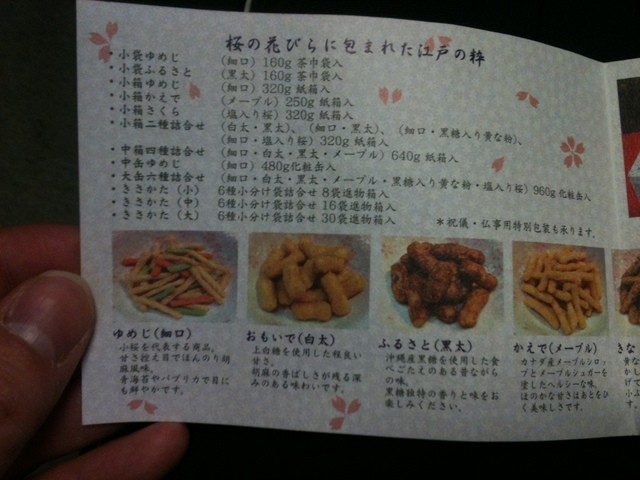 桜の花びらに包まれた江戸の粋
・小袋ゆめじ (細口) 160g 茶巾袋入
・小袋ふるさと (黒太) 160g 茶巾袋入
・小箱ゆめじ (細口) 320g 紙箱入
・小箱かえで (メープル) 250g 紙箱入
・小箱さくら (塩入り桜) 320g 紙箱入
・小箱二種詰合せ (白太・黒太)、(細口・黒太)、(細口・黒糖入り黄な粉)、
(細口・塩入り桜) 320g 紙箱入
・中箱四種詰合せ (細口・白太・黒太・メープル) 640g 紙箱入
・中缶ゆめじ (細口) 480g化粧缶入
・大缶六種詰合せ (細口・白太・黒太・メープル・黒糖入り黄な粉・塩入り桜) 960g化粧缶入
・きさかた (小) 6種小分け袋詰合せ 8袋進物箱入
・きさかた (中) 6種小分け袋詰合せ 16袋進物箱入
・きさかた (大) 6種小分け袋詰合せ 30袋進物箱入
＊祝儀・仏事用特別包装も承ります。
ゆめじ(細口)
小桜を代表する商品。
甘さ控え目でほんのり胡
麻風味。
青海苔やパプリカで目に
も鮮やかです。
おもいで(白太)
上白糖を使用した程良い
甘さ。
胡麻の香ばしさが残る深
みのある味わいです。
ふるさと(黒太)
沖縄産黒糖を使用した食
べごたえのある昔ながら
の味。
黒糖独特の香りと味をお
楽しみください。
かえで(メープル)
カナダ産メープルシロッ
プとメープルシュガーを
塗したヘルシーな味。
ほのかな甘さはあとをひ
く美味しさです。
きな